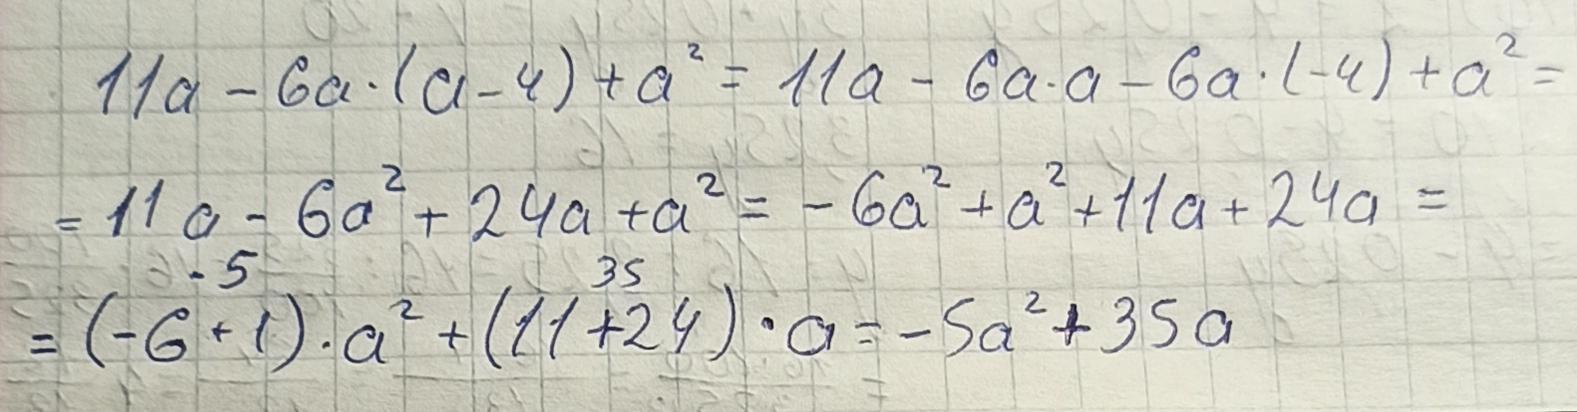 11a - 6a·(a-4) + a² = 11a - 6a·a - 6a·(-4) + a² =
= 11a - 6a² + 24a + a² = - 6a² + a² + 11a + 24a =
-5 35
= (-6+1)·a² + (11+24)·a = -5a² + 35a